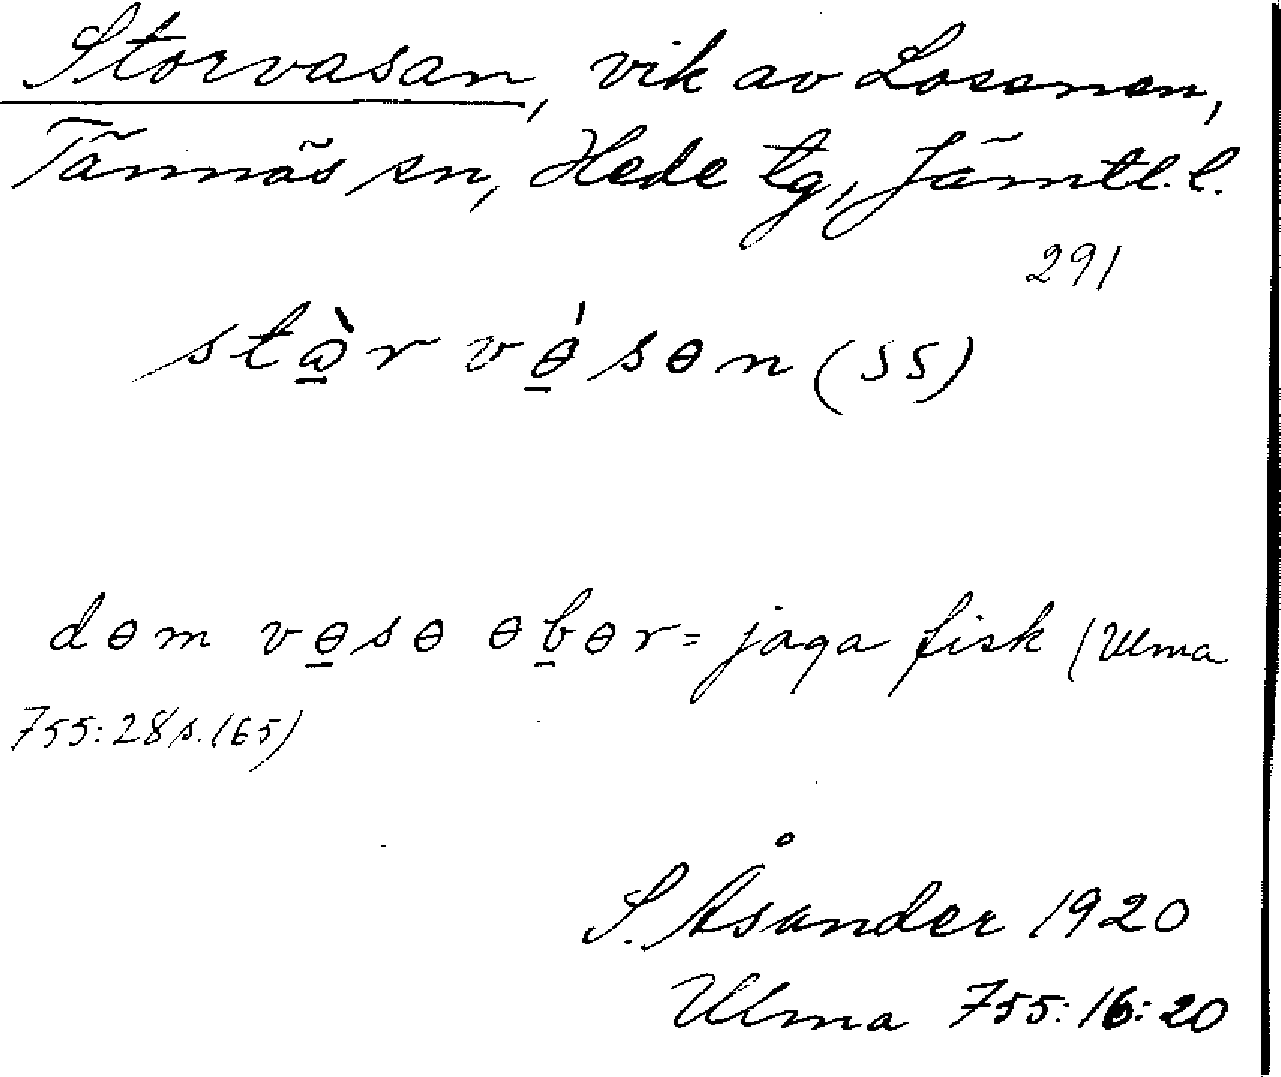 Storvasan, vik av Lossnen,
Tännäs sn, Hede tg, Jämtl. l.
291
stὼ̲r vɵ̲́sɵn (55)
dɵm vɵ̲sɵ ɵb̲ɵr = jaga fisk (Ulma
755:28 s. 165)
S. Åsander 1920
Ulma 755:16:20